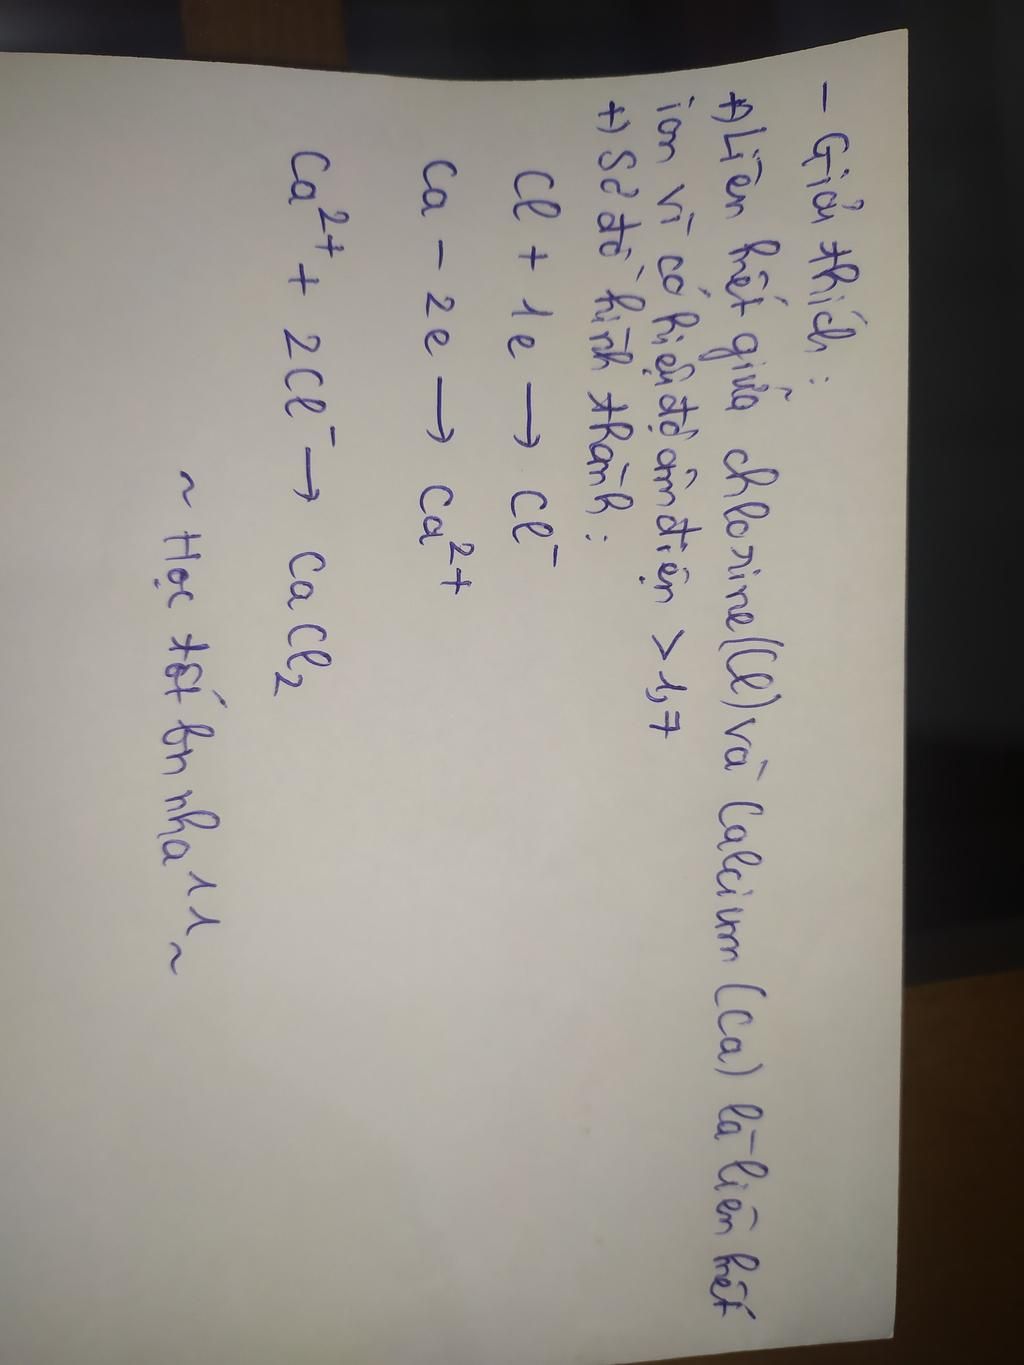 - Giải thích:
+) Liên kết giữa chlorine (Cl) và Calcium (Ca) là liên kết
ion vì có hiệu độ âm điện > 1,7
+) Sơ đồ hình thành:
Cl + 1e → Cl⁻
Ca - 2e → Ca²⁺
Ca²⁺ + 2Cl⁻ → CaCl₂
~ Học tốt bn nha ^^ ~